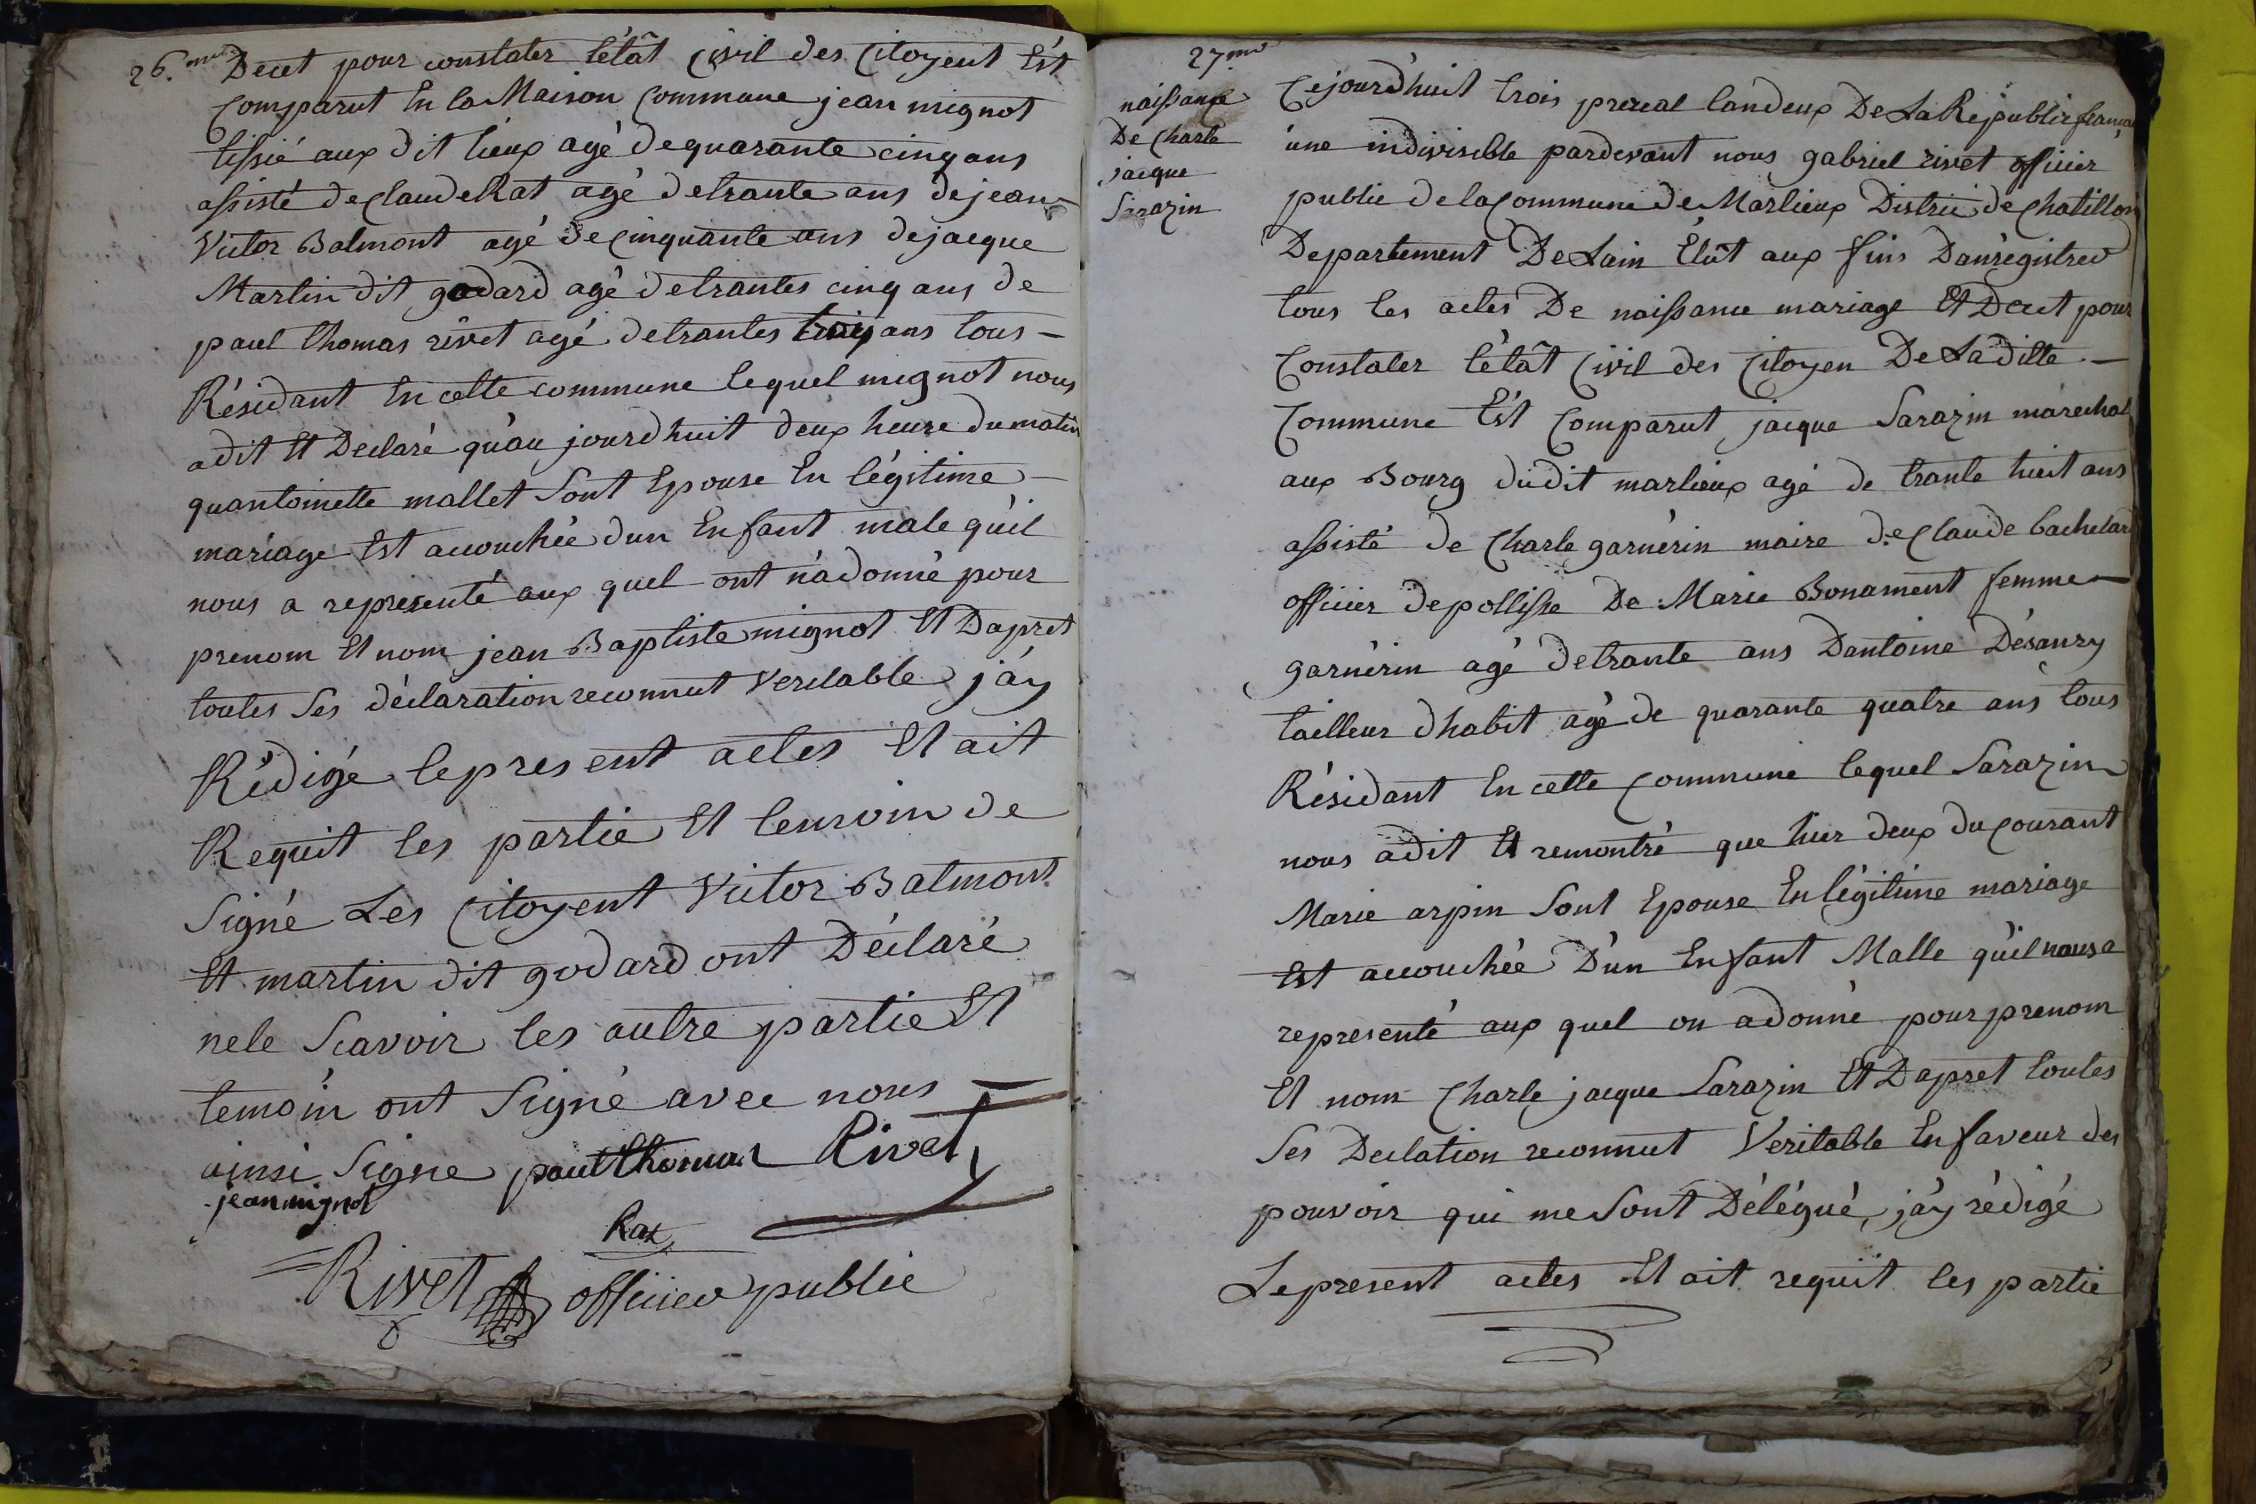 26.me Decet pour constater létât Civil des Citoyent Est
Comparut En la Maison Commune jean mignot
tissié aux dit lieux agé de quarante cinq ans
assisté de Claude Rat agé de trante ans de jean
Victor Balmont agé de Cinquante ans de jacque
Martin dit godard agé de trantes cinq ans de
paul thomas rivet agé de trantes trois ans tous –
Résidant En cette commune lequel mignot nous
adit Et Declaré qu'au jourdhuit deux heure du matin
quantoinette mallet Sont Epouse En légitime –
mariage Est accouchée dun Enfant male qu'il
nous a representé aux quel ont n'a donné pour
prenom Et nom jean Baptiste mignot Et Dapret
toutes Ses déclaration reconnut veritable j'ay
Rédigé le present actes Et ait
Requit les partie Et temoin de
Signé Les Citoyent Victor Balmont
Et martin dit godard ont Déclaré
nele Scavoir les autre partie Et
temoin ont Signé avec nous
ainsi Signe paul thomas Rivet
jean mignot
Rat
Rivet officier public
27me
naissance
De Charle
jacque
Sarazin
Cejourd'huit trois prereal landeux De La Republic français
une indivisible pardevant nous gabriel rivet officier
public de la Commune de Marlieux District de Chatillon
Departement De Lain Élût aux fins Danregistrer
tous les actes De naissance mariage Et Decet pour
Constater létât Civil des Citoyen De Laditte –
Commune Est Comparut jacque Sarazin marechal
aux Bourg dudit marlieux agé de trante huit ans
assisté de Charle garnérin maire de Claude bachelard
officier de pollisse De Marie Bonament femme –
garnérin agé de trante ans Dantoine Désanzy
tailleur dhabit agé de quarante quatre ans tous
Résidant En cette Commune lequel Sarazin
nous adit Et remontré que hier deux du Courant
Marie arpin Sont Epouse En légitime mariage
Est accouchée D'un Enfant Malle qu'il nous a
representé aux quel on adonné pour prenom
Et nom Charle jacque Sarazin Et Dapret toutes
Ses Declation reconnut Veritable En faveur des
pouvoir qui me Sont Délégué, j'ay rédigé
Le present actes Et ait requit les partie